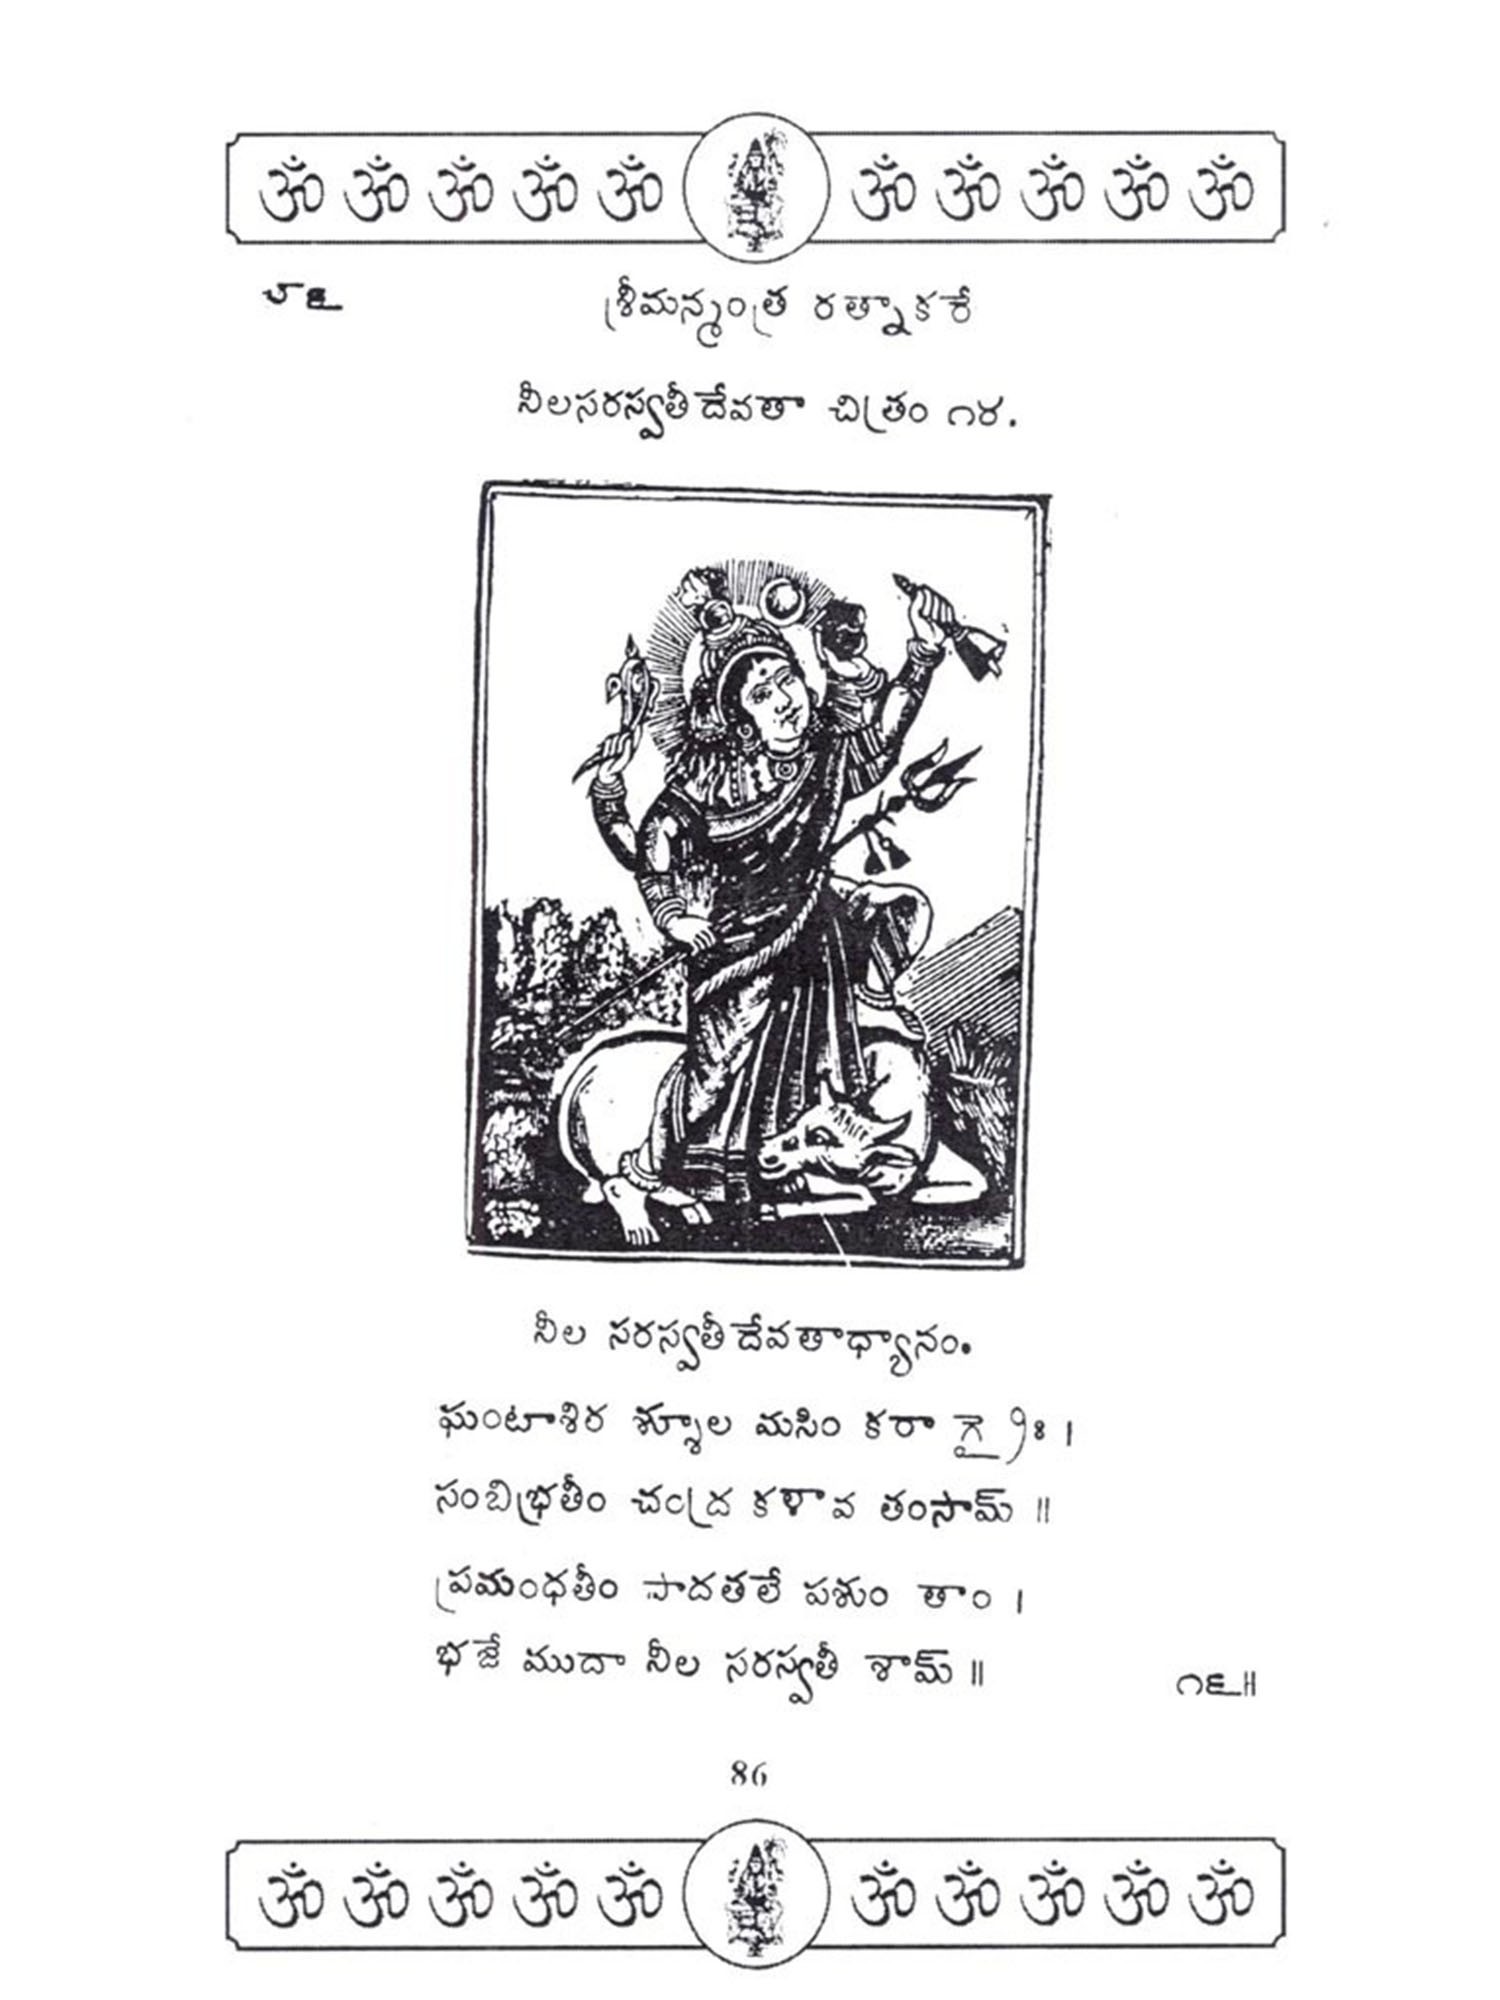 ॐ ॐ ॐ ॐ ॐ ॐ ॐ ॐ ॐ ॐ
౮౬ శ్రీమన్మంత్ర రత్నాకరే
నీలసరస్వతీదేవతా చిత్రం ౧౪.
నీల సరస్వతీదేవతాధ్యానం.
ఘంటాశిర శ్శూల మసిం కరా గ్రైః ।
సంబిభ్రతీం చంద్ర కళావ తంసామ్ ॥
ప్రమంధతీం పాదతలే పశుం తాం ।
భజే ముదా నీల సరస్వతీ శామ్ ॥ ౧౬॥
86
ॐ ॐ ॐ ॐ ॐ ॐ ॐ ॐ ॐ ॐ